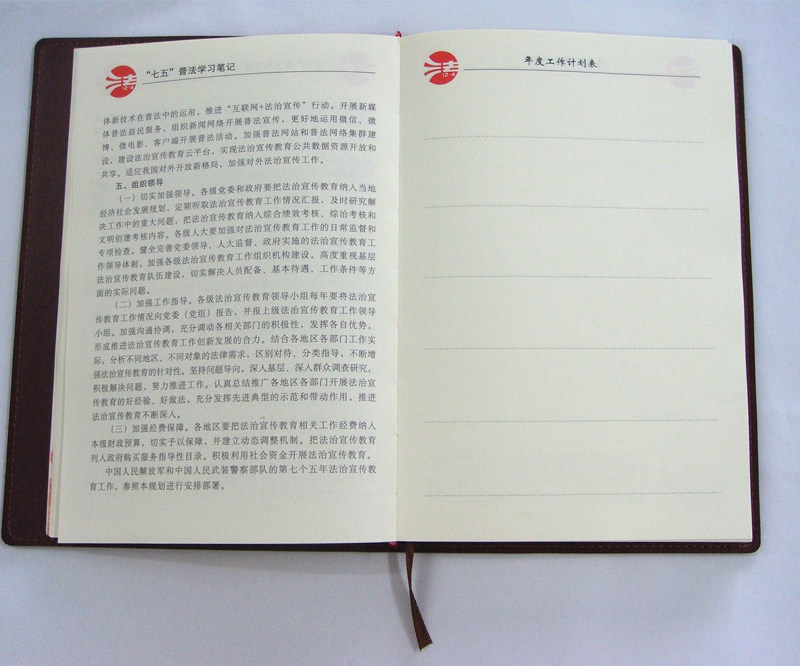 法
“七五”普法学习笔记
体新技术在普法中的运用，推进“互联网+法治宣传”行动。开展新媒
体普法益民服务，组织新闻网络开展普法宣传，更好地运用微信、微
博、微电影、客户端开展普法活动。加强普法网站和普法网络集群建
设，建设法治宣传教育云平台，实现法治宣传教育公共数据资源开放和
共享。适应我国对外开放新格局，加强对外法治宣传工作。
五、组织领导
（一）切实加强领导。各级党委和政府要把法治宣传教育纳入当地
经济社会发展规划，定期听取法治宣传教育工作情况汇报，及时研究解
决工作中的重大问题，把法治宣传教育纳入综合绩效考核、综治考核和
文明创建考核内容。各级人大要加强对法治宣传教育工作的日常监督和
专项检查。健全完善党委领导、人大监督、政府实施的法治宣传教育工
作领导体制，加强各级法治宣传教育工作组织机构建设。高度重视基层
法治宣传教育队伍建设，切实解决人员配备、基本待遇、工作条件等方
面的实际问题。
（二）加强工作指导。各级法治宣传教育领导小组每年要将法治宣
传教育工作情况向党委（党组）报告，并报上级法治宣传教育工作领导
小组。加强沟通协调，充分调动各相关部门的积极性，发挥各自优势，
形成推进法治宣传教育工作创新发展的合力。结合各地区各部门工作实
际，分析不同地区、不同对象的法律需求，区别对待、分类指导，不断增
强法治宣传教育的针对性。坚持问题导向，深入基层、深入群众调查研究，
积极解决问题，努力推进工作。认真总结推广各地区各部门开展法治宣
传教育的好经验、好做法，充分发挥先进典型的示范和带动作用，推进
法治宣传教育不断深入。
（三）加强经费保障。各地区要把法治宣传教育相关工作经费纳入
本级财政预算，切实予以保障，并建立动态调整机制。把法治宣传教育
列入政府购买服务指导性目录。积极利用社会资金开展法治宣传教育。
中国人民解放军和中国人民武装警察部队的第七个五年法治宣传教
育工作，参照本规划进行安排部署。
法
年度工作计划表